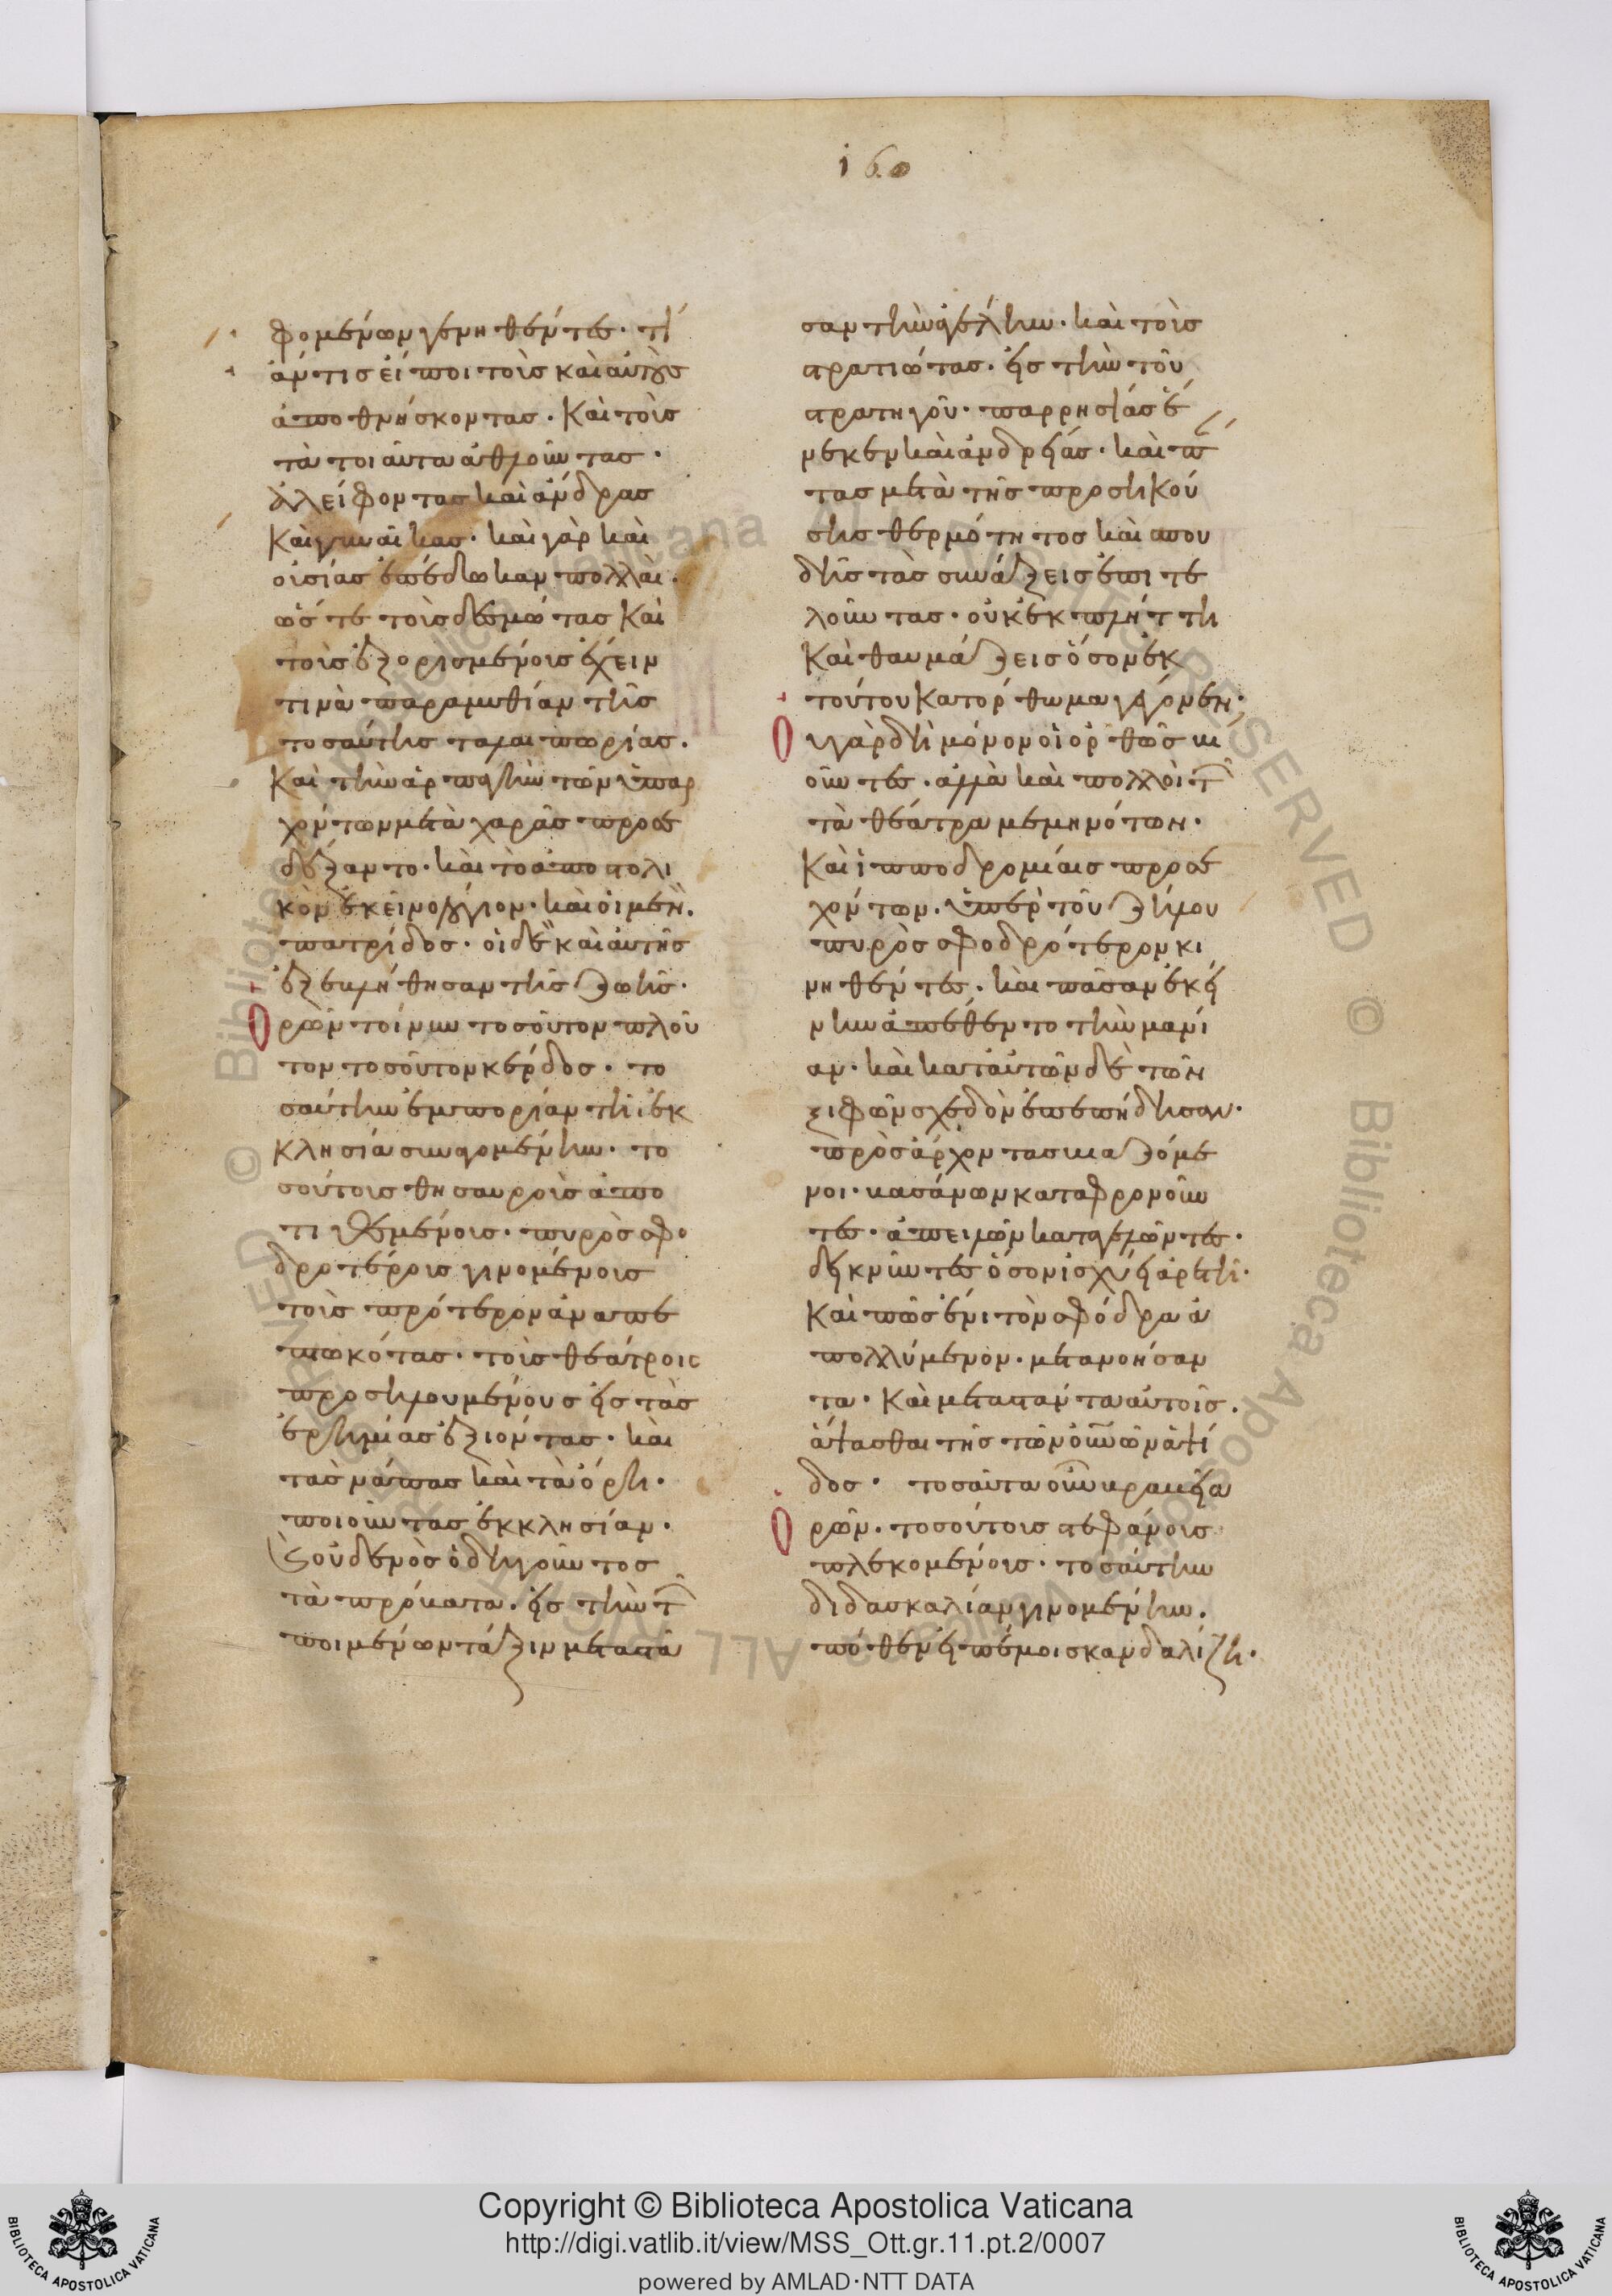 160
φομένων γενηθέντες· τί
ἄν τις εἴποι τοὺς καὶ αὐτοὺς
ἀποθνήσκοντας· καὶ τοὺς
τὰ τοιαῦτα ἀθλοῦντας·
ἀλείφοντας καὶ ἄνδρας
καὶ γυναῖκας· καὶ γὰρ καὶ
οὐσίας ἐπέδωκαν πολλοὶ·
ὥστε τοὺς δεσμώτας καὶ
τοὺς ἐξορισμένους ἔχειν
τινὰ παραμυθίαν τῆς
τοσαύτης ταλαιπωρίας·
καὶ τὴν ἁρπαγὴν τῶν ὑπαρ
χόντων μετὰ χαρᾶς προσε
δέξαντο· καὶ τὸ ἀποστολι
κὸν ἐκεῖνο λόγιον· καὶ οἱ μὲν·
πατρίδος· οἱ δὲ καὶ αὐτῆς
ἐξεβλήθησαν τῆς ζωῆς·
Ὁρῶν τοίνυν τοσοῦτον πλοῦ
τον τοσοῦτον κέρδος· το
σαύτην ἐμπορίαν τῆ ἐκ
κλησία συναγομένην· το
σούτους θησαυροὺς ἀπο
τιθεμένους· πυρὸς σφο
δροτέρους γινομένους
τοὺς πρότερον ἀναπε
πτωκότας· τοὺς θεάτροις
προσηλουμένους εἰς τὰς
ἐρημίας ἐξιόντας· καὶ
τὰς νάπας καὶ τὰ ὄρη·
ποιοῦντας ἐκκλησίαν·
καὶ οὐδενὸς ὁδηγοῦντος
τὰ πρόβατα· εἰς τὴν τῶν
ποιμένων τάξιν μεταστὰ
σαν τὴν ἀγέλην· καὶ τοὺς
στρατιώτας· εἰς τὴν τοῦ
στρατηγοῦ· παρρησίας ἕ
νεκεν καὶ ἀνδρείας· καὶ πάν
τας μετὰ τῆς προσηκού
σης θερμότητος καὶ σπου
δῆς τὰς συνάξεις ἐπιτε
λοῦντας· οὐκ ἐκπλήττη
καὶ θαυμάζεις ὅσον ἐκ
τούτου κατόρθωμα γέγονεν·
Οὐ γὰρ δὴ μόνον οἱ ὀρθῶς βι
οῦντες· ἀλλὰ καὶ πολλοὶ τῶν
τὰ θέατρα μεμηνότων·
καὶ ἱπποδρομίαις προσε
χόντων· ὑπὲρ τοῦ ζήλου
πυρὸς σφοδρότερον κι
νηθέντες· καὶ πᾶσαν ἐκεί
νην ἀπέθεντο τὴν μανί
αν· καὶ κατ' αὐτῶν δὲ τῶν
ξιφῶν σχεδὸν ἐπεπήδησαν·
πρὸς ἄρχοντας βιαζόμε
νοι· βασάνων καταφρονοῦν
τες· ἀπειλῶν καταγελῶντες·
δεικνῦντες ὅσον ἰσχύει ἀρετὴ·
καὶ πῶς ἔνι τὸν σφόδρα ἀ
πολλύμενον· μετανοήσαν
τα· καὶ μεταστάντα αὐτοῖς·
ἅψασθαι τῆς τῶν οὐρανῶν ἁψί
δος· τοσαῦτα οὖν βραβεῖα
Ὁρῶν· τοσούτους στεφάνους
πλεκομένους· τοσαύτην
διδασκαλίαν γινομένην·
πόθεν εἰπέ μοι σκανδαλίζη·
Copyright © Biblioteca Apostolica Vaticana
http://digi.vatlib.it/view/MSS_Ott.gr.11.pt.2/0007
powered by AMLAD·NTT DATA
BIBLIOTECA APOSTOLICA VATICANA
BIBLIOTECA APOSTOLICA VATICANA